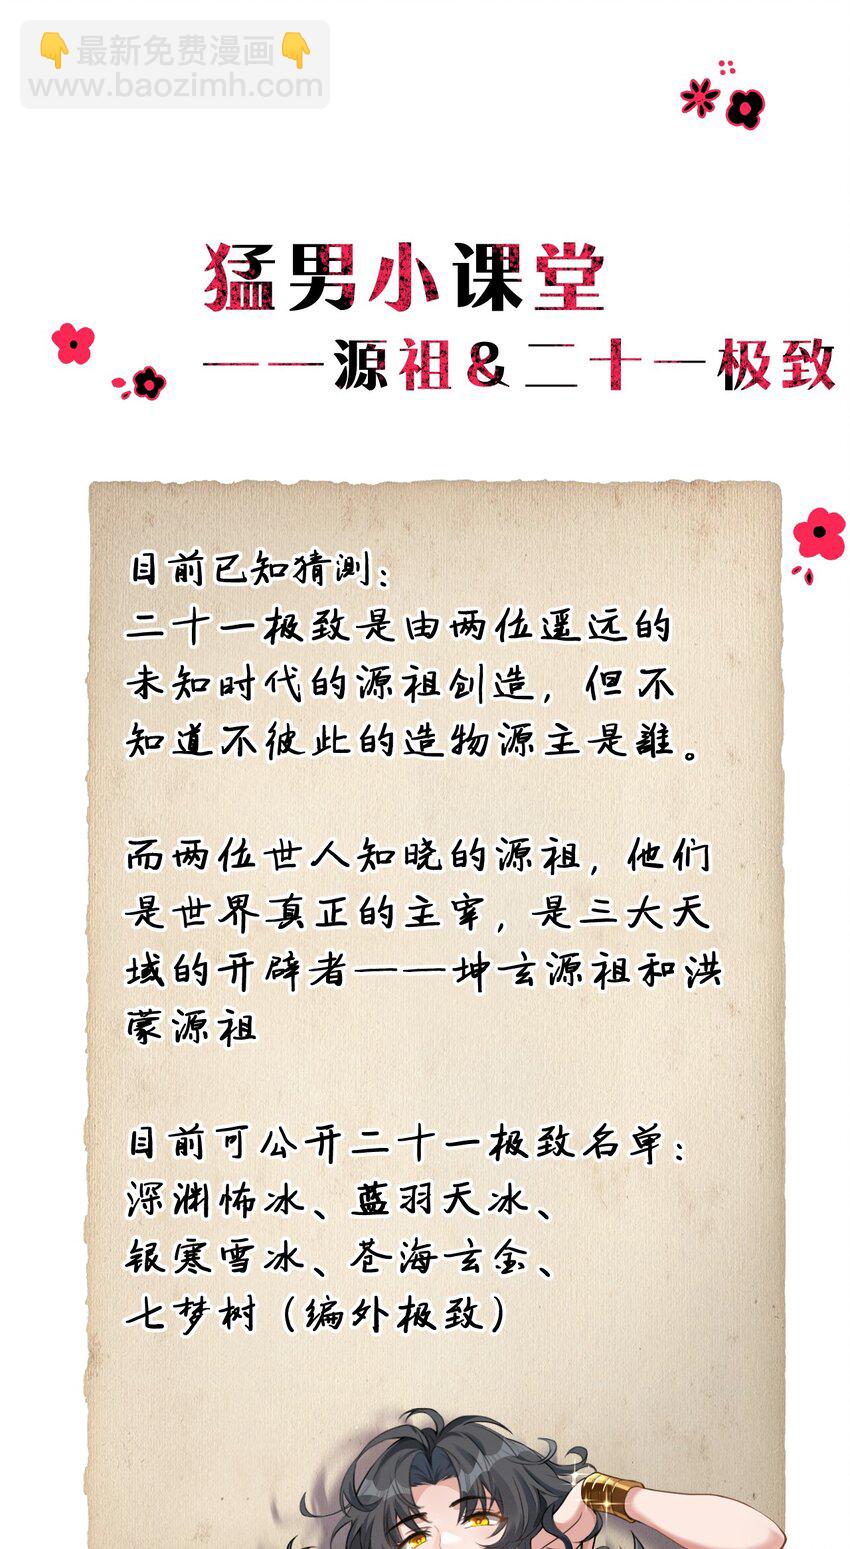 👇最新免费漫画👇
www.baozimh.com
猛男小课堂
——源祖&二十一极致
目前已知猜测：
二十一极致是由两位遥远的
未知时代的源祖创造，但不
知道不彼此的造物源主是誰。
而两位世人知晓的源祖，他们
是世界真正的主宰，是三大天
域的开辟者——坤玄源祖和洪
蒙源祖
目前可公开二十一极致名单：
深渊怖冰、蓝羽天冰、
银寒雪冰、苍海玄金、
七梦树（编外极致）